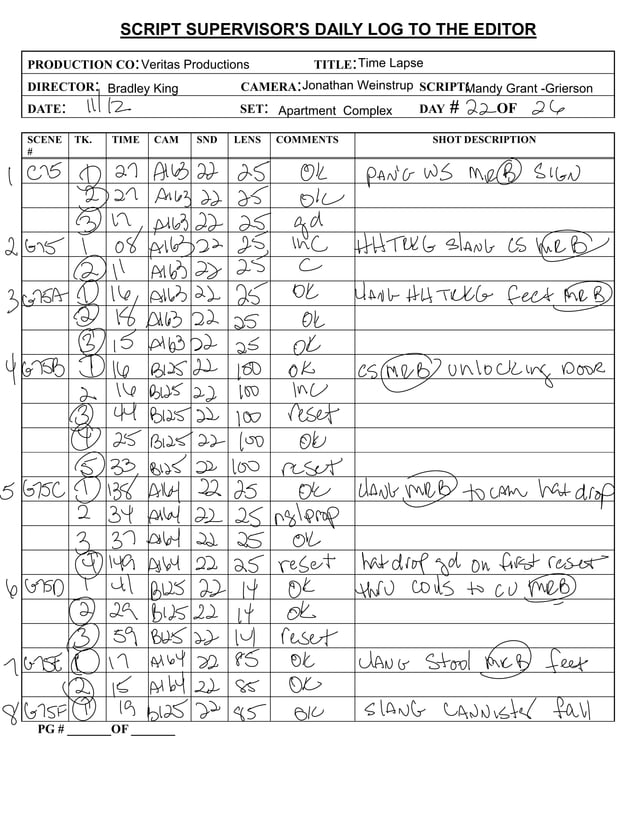 SCRIPT SUPERVISOR'S DAILY LOG TO THE EDITOR
PRODUCTION CO: Veritas Productions TITLE: Time Lapse
DIRECTOR: Bradley King CAMERA: Jonathan Weinstrup SCRIPT: Mandy Grant -Grierson
DATE: 11/12 SET: Apartment Complex DAY # 22 OF 26
SCENE # TK. TIME CAM SND LENS COMMENTS SHOT DESCRIPTION
1 C75 1 27 A163 22 25 OK PANG WS MRB SIGN
2 27 A163 22 25 OK
3 17 A163 22 25 gd
2 G75 1 08 A163 22 25 INC HHTRKG SLANG CS MRB
2 11 A163 22 25 C
3 G75A 1 16 A163 22 25 OK UANG HHTRKG feet MRB
2 18 A163 22 25 OK
3 15 A163 22 25 OK
4 G75B 1 16 B125 22 100 OK CS MRB unlocking DOOR
2 16 B125 22 100 INC
3 44 B125 22 100 reset
4 25 B125 22 100 OK
5 33 B125 22 100 reset
5 G75C 1 138 A164 22 25 OK UANG MRB to cam hat drop
2 34 A164 22 25 ng/prop
3 37 A164 22 25 OK
4 149 A164 22 25 reset hat drop gd on first reset
6 G75D 1 41 B125 22 14 OK thru to CU MRB
2 29 B125 22 14 OK
3 59 B125 22 14 reset
7 G75E 1 17 A164 22 85 OK UANG Stool MRB feet
2 15 A164 22 85 OK
8 G75F 1 19 B125 22 85 OK SLANG CANNISter fall
PG # OF